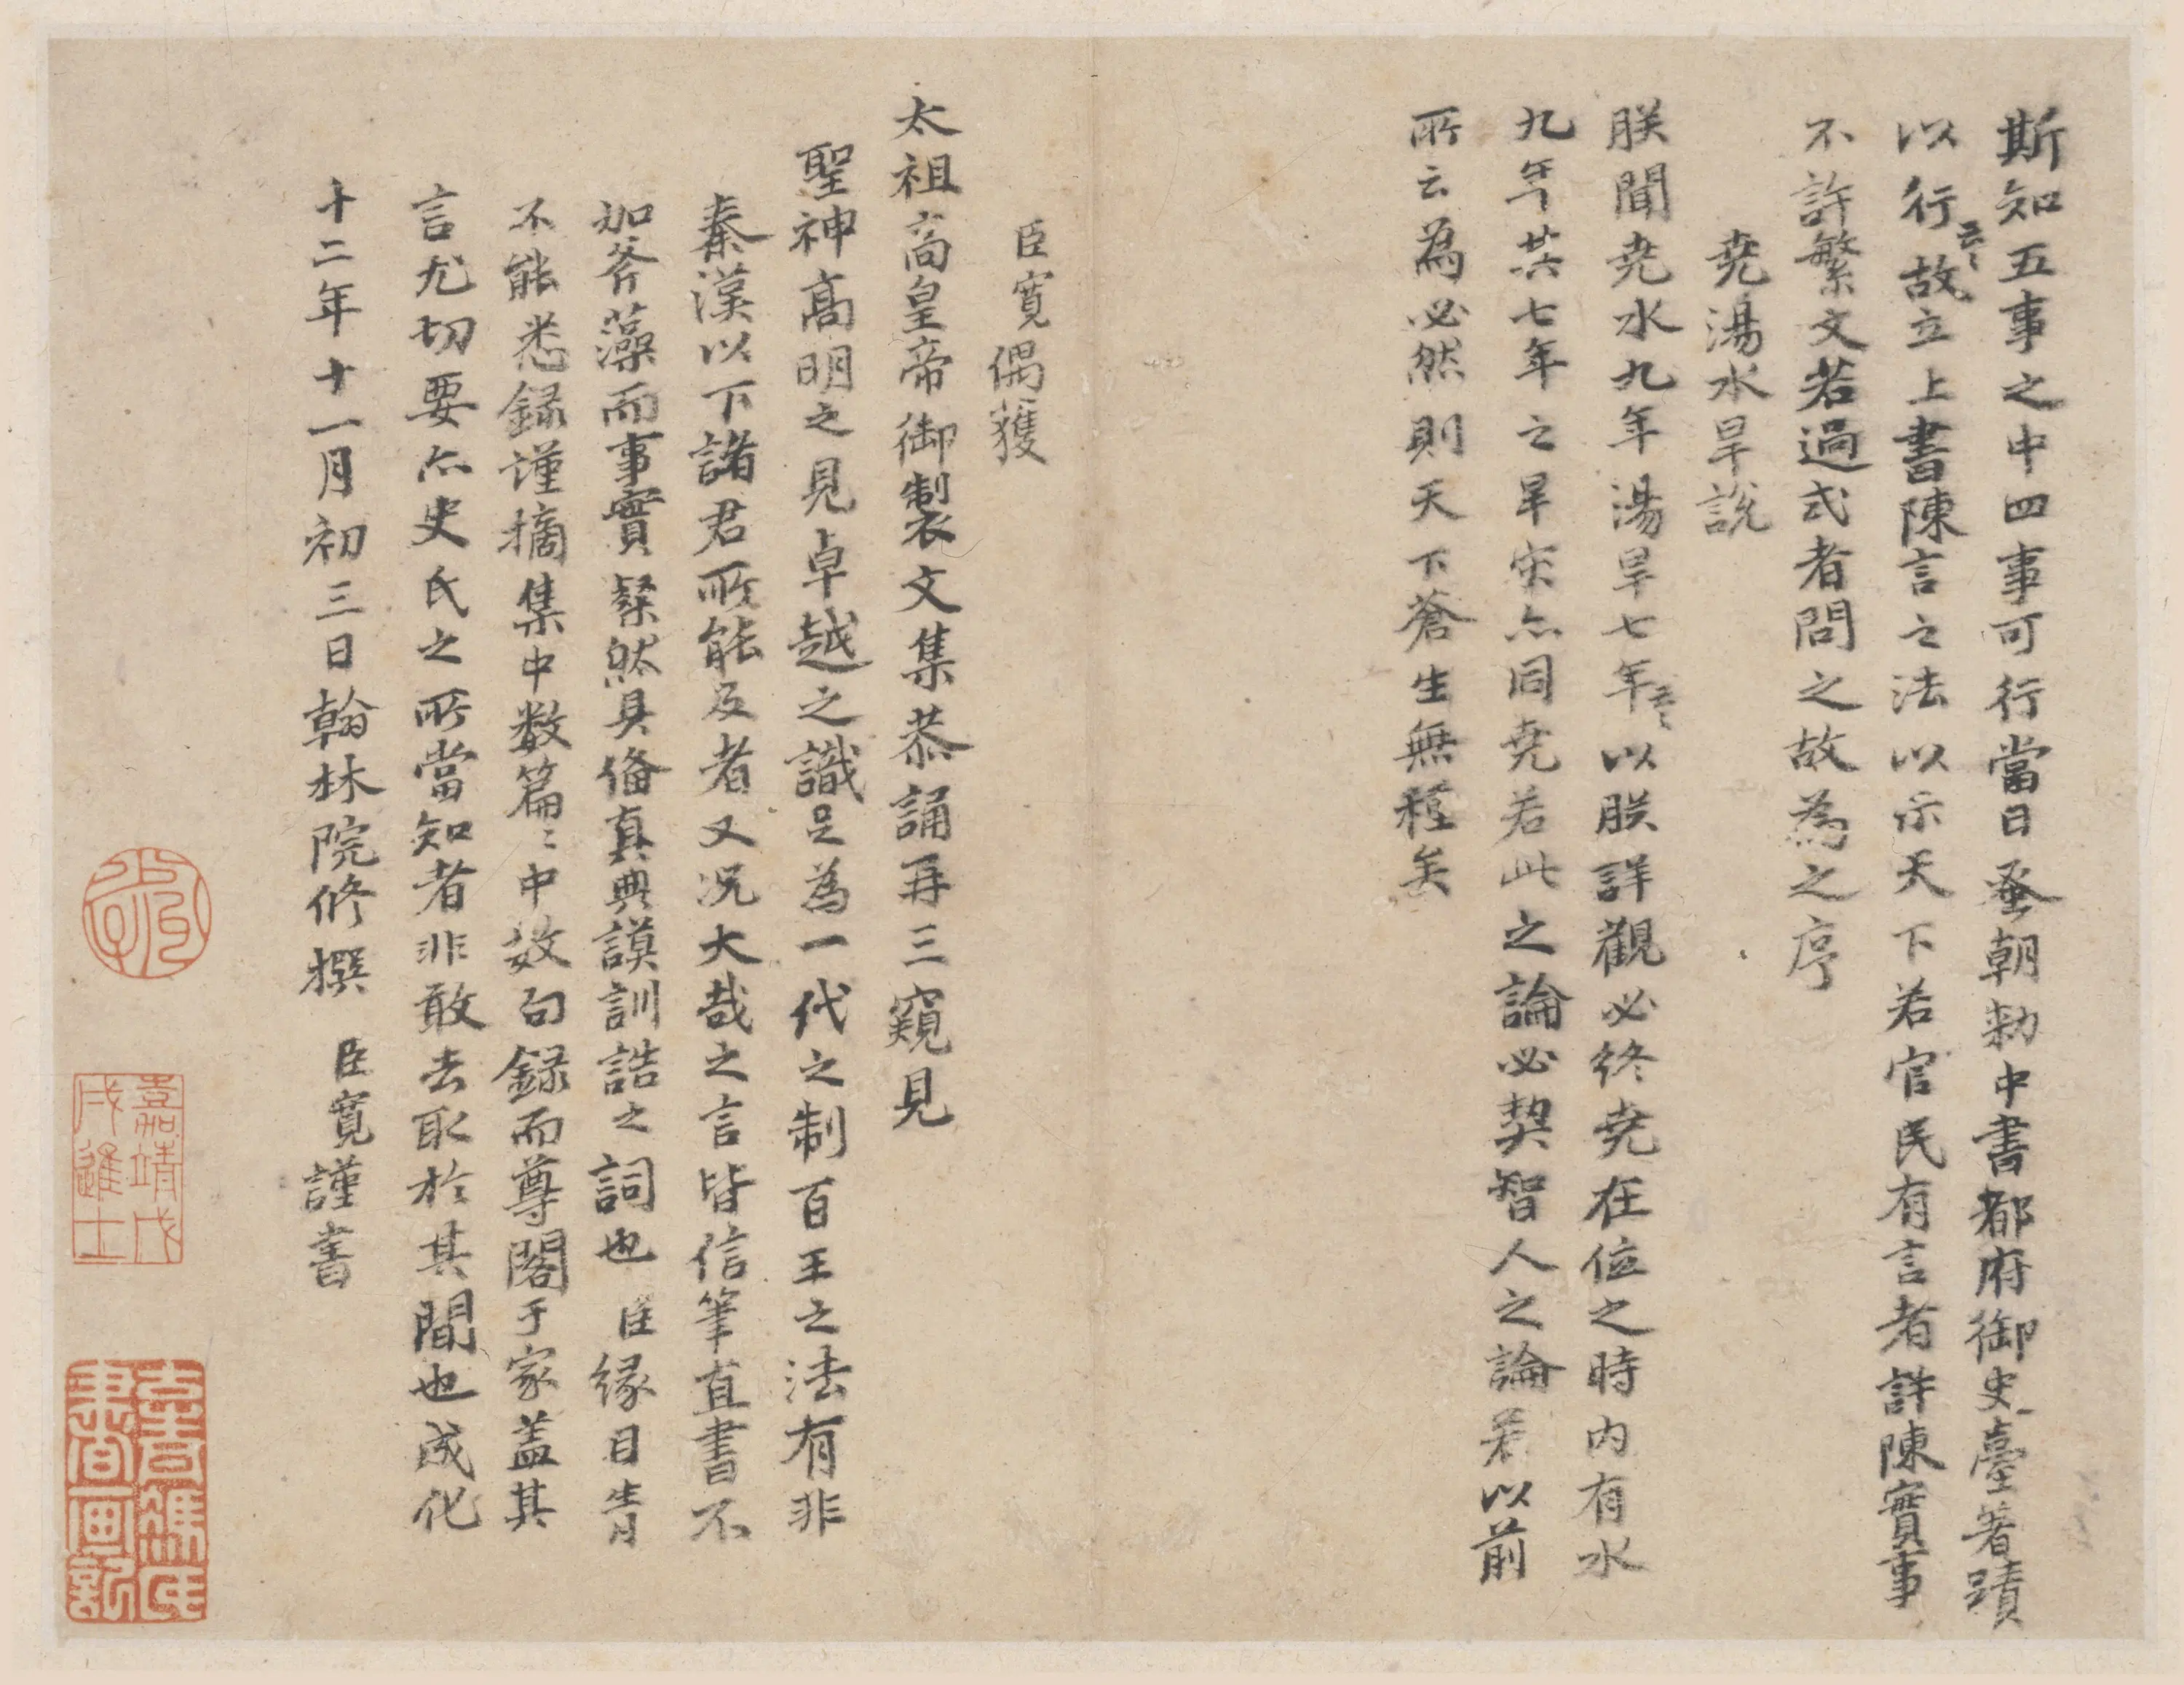 斯知五事之中四事可行當日蚤朝勑中書都府御史臺著蹟
以行云云故立上書陳言之法以示天下若官民有言者詳陳實事
不許繁文若過式者問之故為之序
堯湯水旱說
朕聞堯水九年湯旱七年云云以朕詳觀必終堯在位之時內有水
九年其七年之旱宋亦同堯若此之論必契智人之論若以前
所云為必然則天下蒼生無種矣
臣寬偶獲
太祖高皇帝御製文集恭誦再三窺見
聖神高明之見卓越之識足為一代之制百王之法有非
秦漢以下諸君所能及者又況大哉之言皆信筆直書不
加斧藻而事實粲然具俻真典謨訓誥之詞也臣緣目眚
不能悉録謹摘集中数篇〻中数句録而尊閣于家盖其
言尤切要亦史氏之所當知者非敢去取於其間也成化
十二年十一月初三日翰林院修撰臣寬謹書
嘉靖戊
戌進士